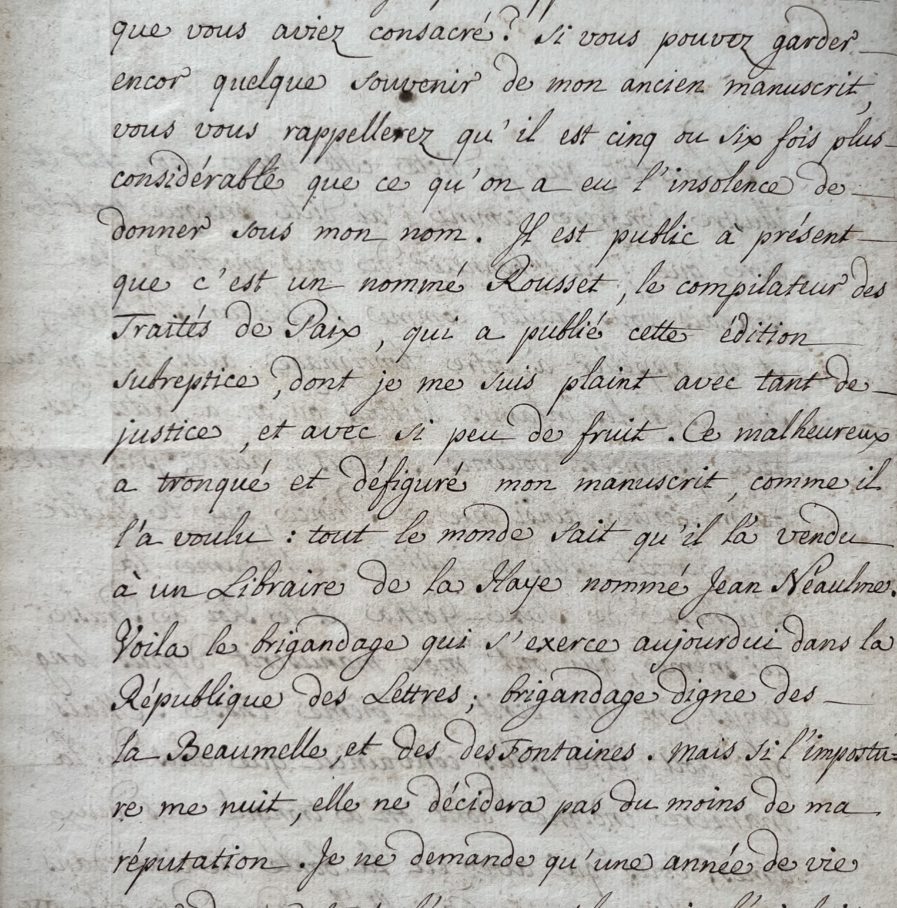 que vous aviez consacré? si vous pouvez garder
encor quelque souvenir de mon ancien manuscrit,
vous vous rappellerez qu'il est cinq ou six fois plus
considérable que ce qu'on a eu l'insolence de
donner sous mon nom. Il est public à présent
que c'est un nommé Rousset, le compilateur des
Traités de Paix, qui a publié cette édition
subreptice, dont je me suis plaint avec tant de
justice, et avec si peu de fruit. Ce malheureux
a tronqué et défiguré mon manuscrit, comme il
l'a voulu: tout le monde sait qu'il l'a vendu
à un Libraire de la Haye nommé Jean Néaulme.
Voila le brigandage qui s'exerce aujourdui dans la
République des Lettres; brigandage digne des
la Beaumelle, et des des Fontaines. Mais si l'impostu=
re me nuit, elle ne décidera pas du moins de ma
réputation. Je ne demande qu'une année de vie